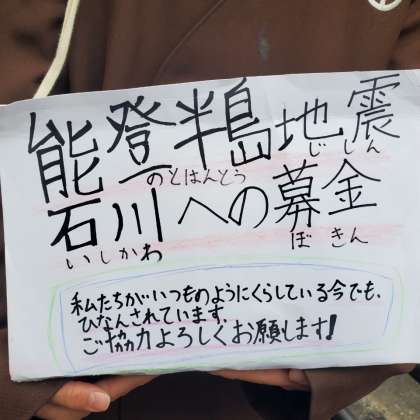 能登半島地震
のとはんとう じしん
石川への募金
いしかわ ぼきん
私たちがいつものようにくらしている今でも、
ひなんされています。
ご協力よろしくお願します!